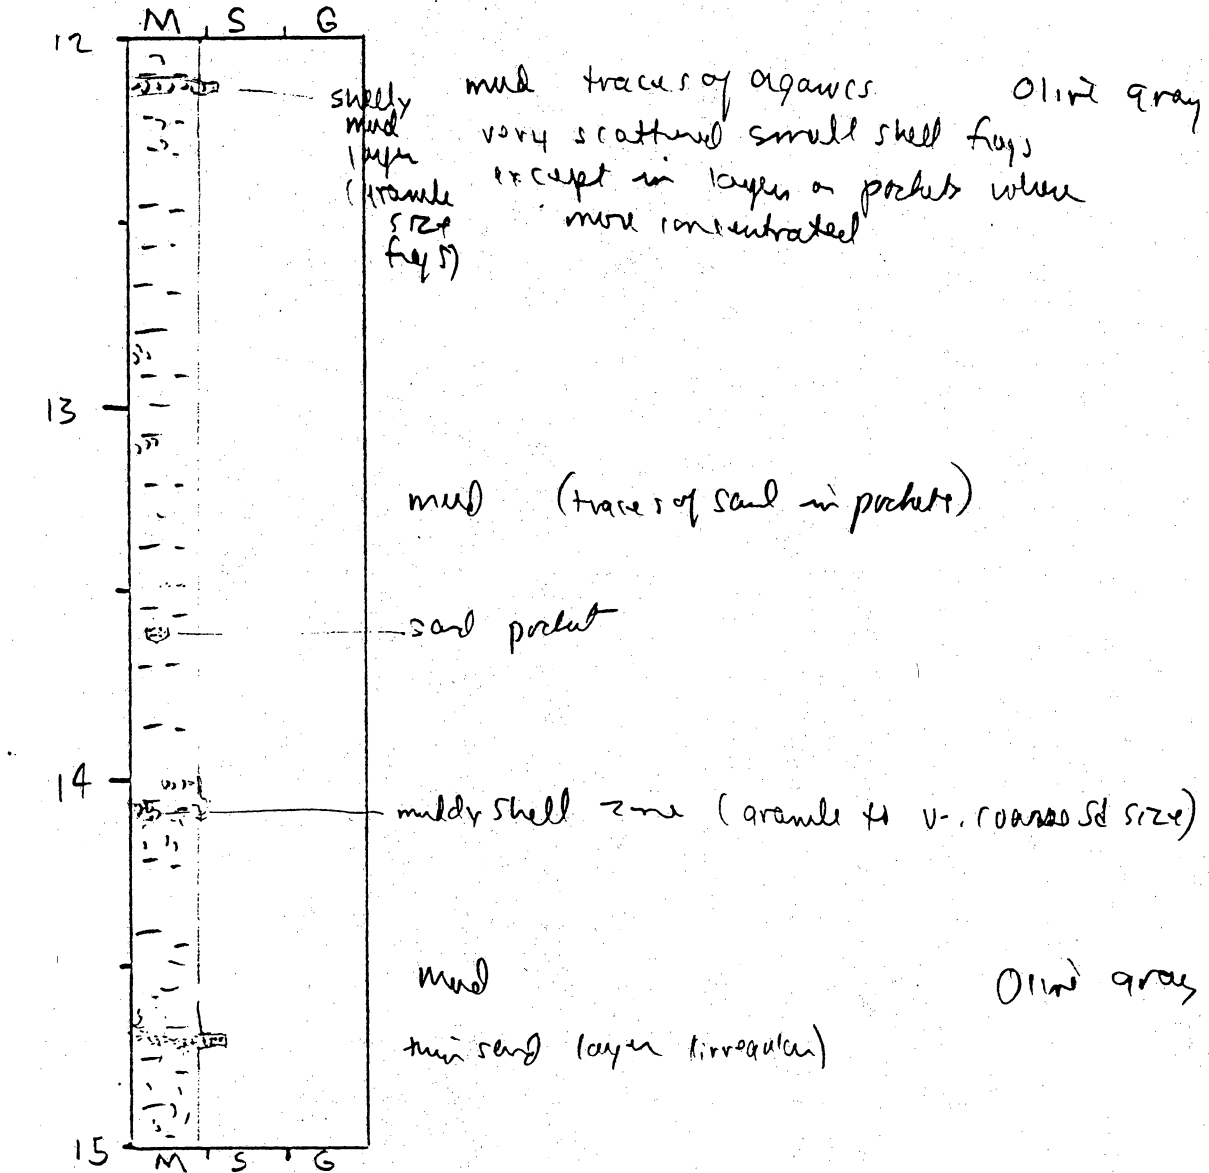 M S G
12
shelly
mud
layer
(granule
size
frags)
mud traces of organics Olive gray
very scattered small shell frags
except in layers or pockets where
more concentrated
13
mud (traces of sand in pockets)
sand pocket
14
muddy shell zone (granule to v. coarse sd size)
Mud Olive gray
thin sand layer (irregular)
15
M S G